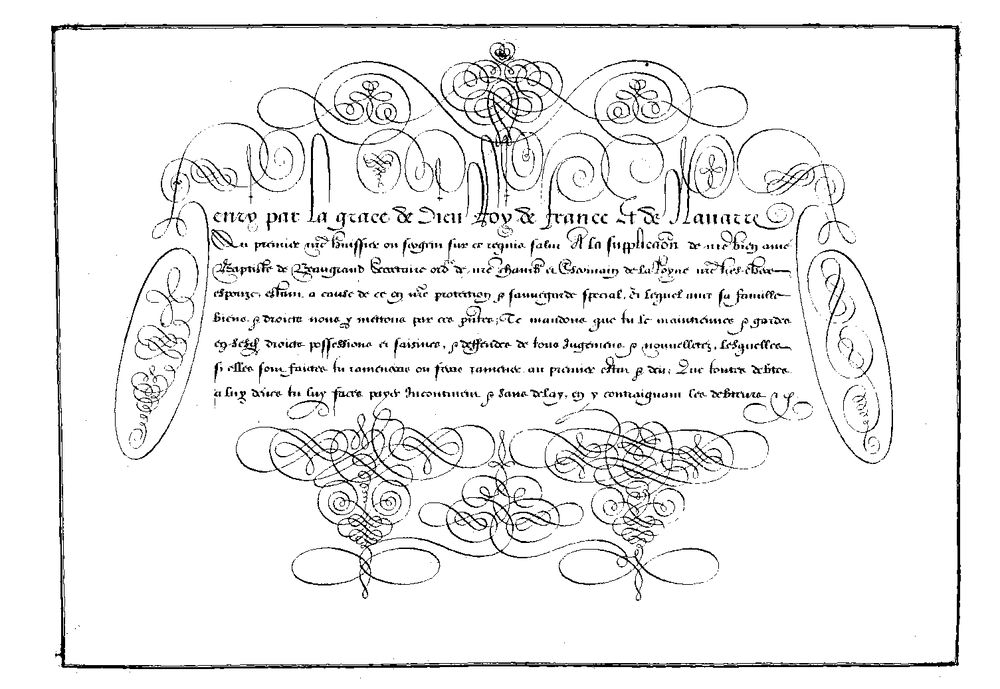 enry par la grace de Dieu Roy de france Et de Navarre
Au premier nr̃e huissier ou sergen sur ce requis salut A la supplicaõn de nr̃e bien ame
Baptiste de Beaugrand Secretaire ordre de nr̃e chambre et Escrivain de la Royne nr̃e tres chere
espouze, estant a cause de ce en nr̃e protection & sauvegarde special, Et lequel avec sa famille
biens, & droicts nous y mettons par ces pñtes, Te mandons que tu le maintiennes & gardes
en ses droicts possessions et saisines, & deffendes de tous Jugemens & nouvelletez, lesquelles
si elles sont faictes tu rameneras ou feras ramener au premier estat & deu. Que toutes debtes
a luy deues tu luy faces payer Incontinent & sans delay, en y contraignant les debteurs